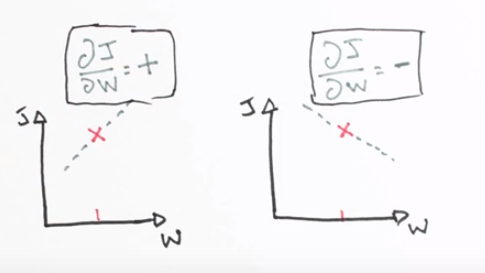 ∂J/∂W = +
∂J/∂W = -
J
W
J
W